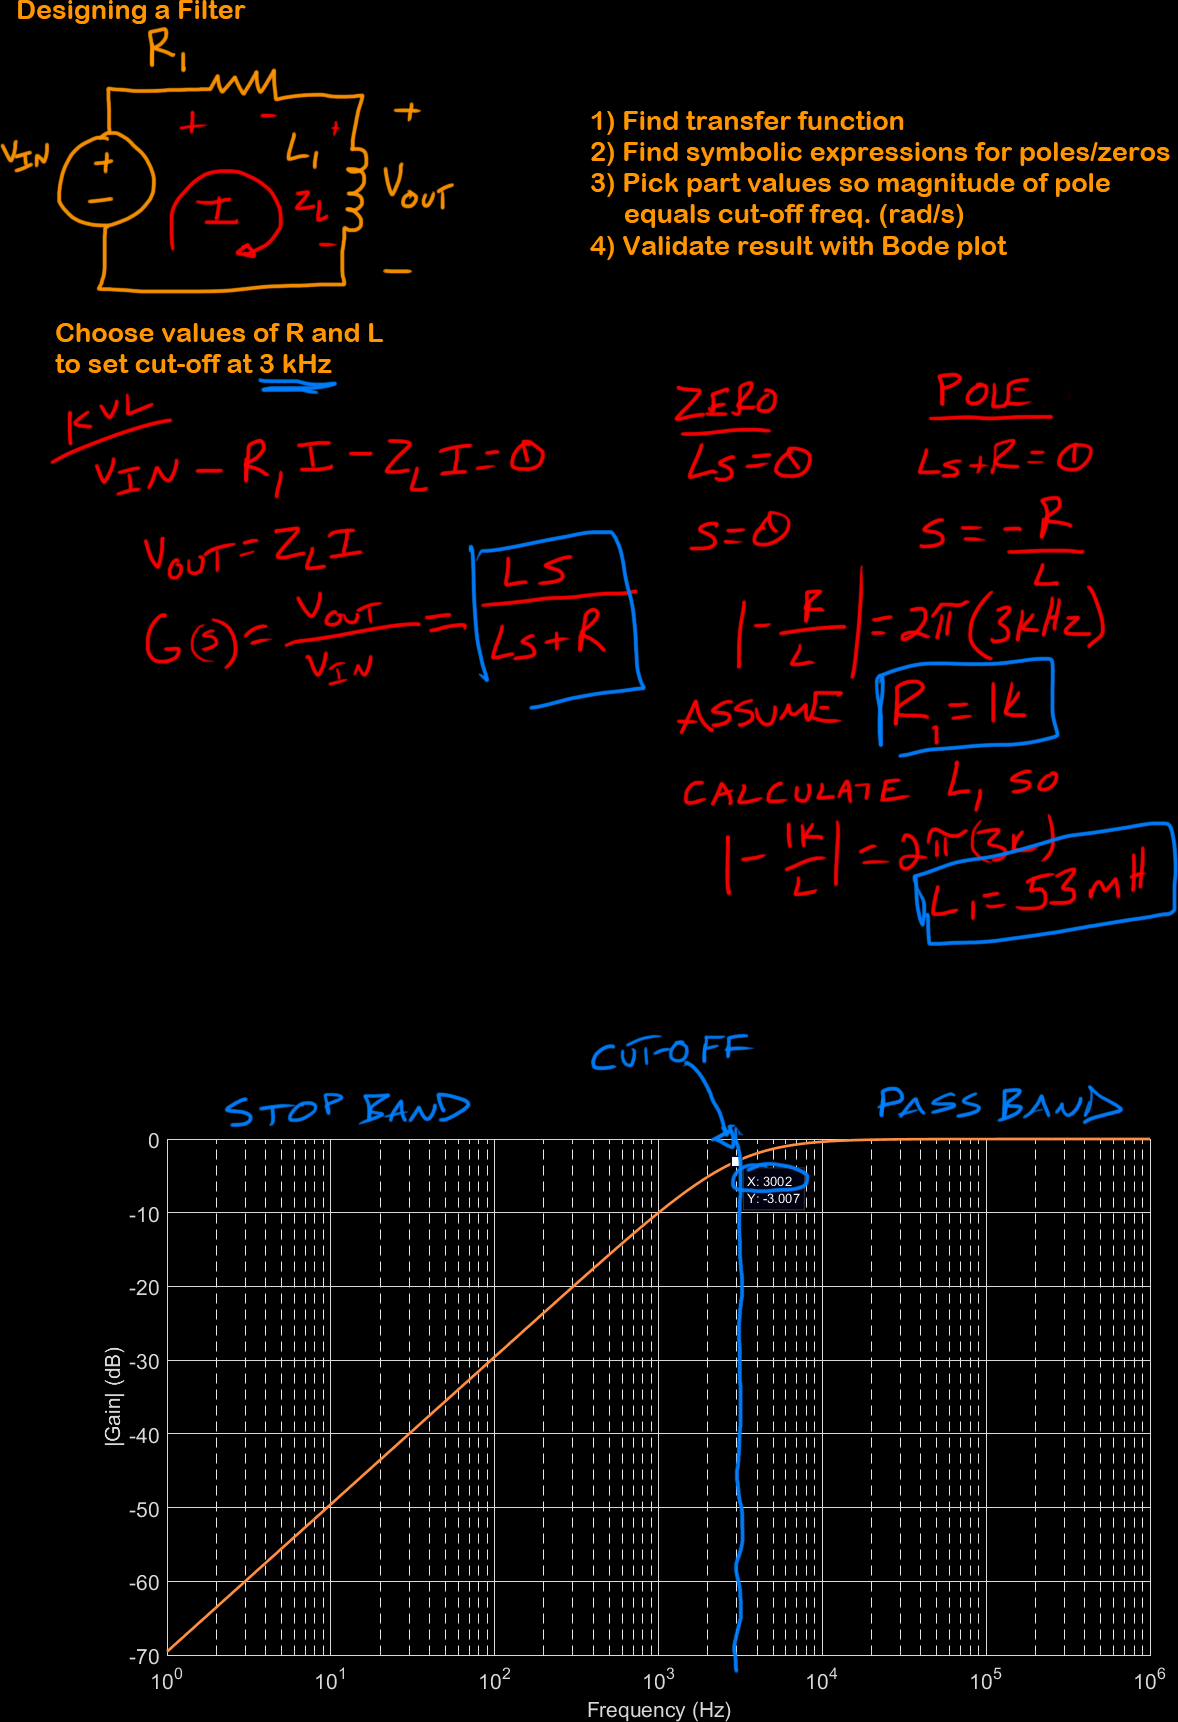 Designing a Filter
R1
VIN
+
-
+
-
I
L1
ZL
+
-
+
VOUT
-
1) Find transfer function
2) Find symbolic expressions for poles/zeros
3) Pick part values so magnitude of pole
equals cut-off freq. (rad/s)
4) Validate result with Bode plot
Choose values of R and L
to set cut-off at 3 kHz
KVL
VIN - R1 I - ZL I = 0
VOUT = ZL I
G(s) = VOUT / VIN = LS / LS + R
ZERO
LS = 0
S = 0
POLE
LS + R = 0
S = - R / L
|- R / L| = 2π(3kHz)
ASSUME R1 = 1k
CALCULATE L1 SO
|- 1k / L| = 2π(3k)
L1 = 53mH
CUT-OFF
STOP BAND
PASS BAND
X: 3002
Y: -3.007
|Gain| (dB)
0
-10
-20
-30
-40
-50
-60
-70
10^0 10^1 10^2 10^3 10^4 10^5 10^6
Frequency (Hz)